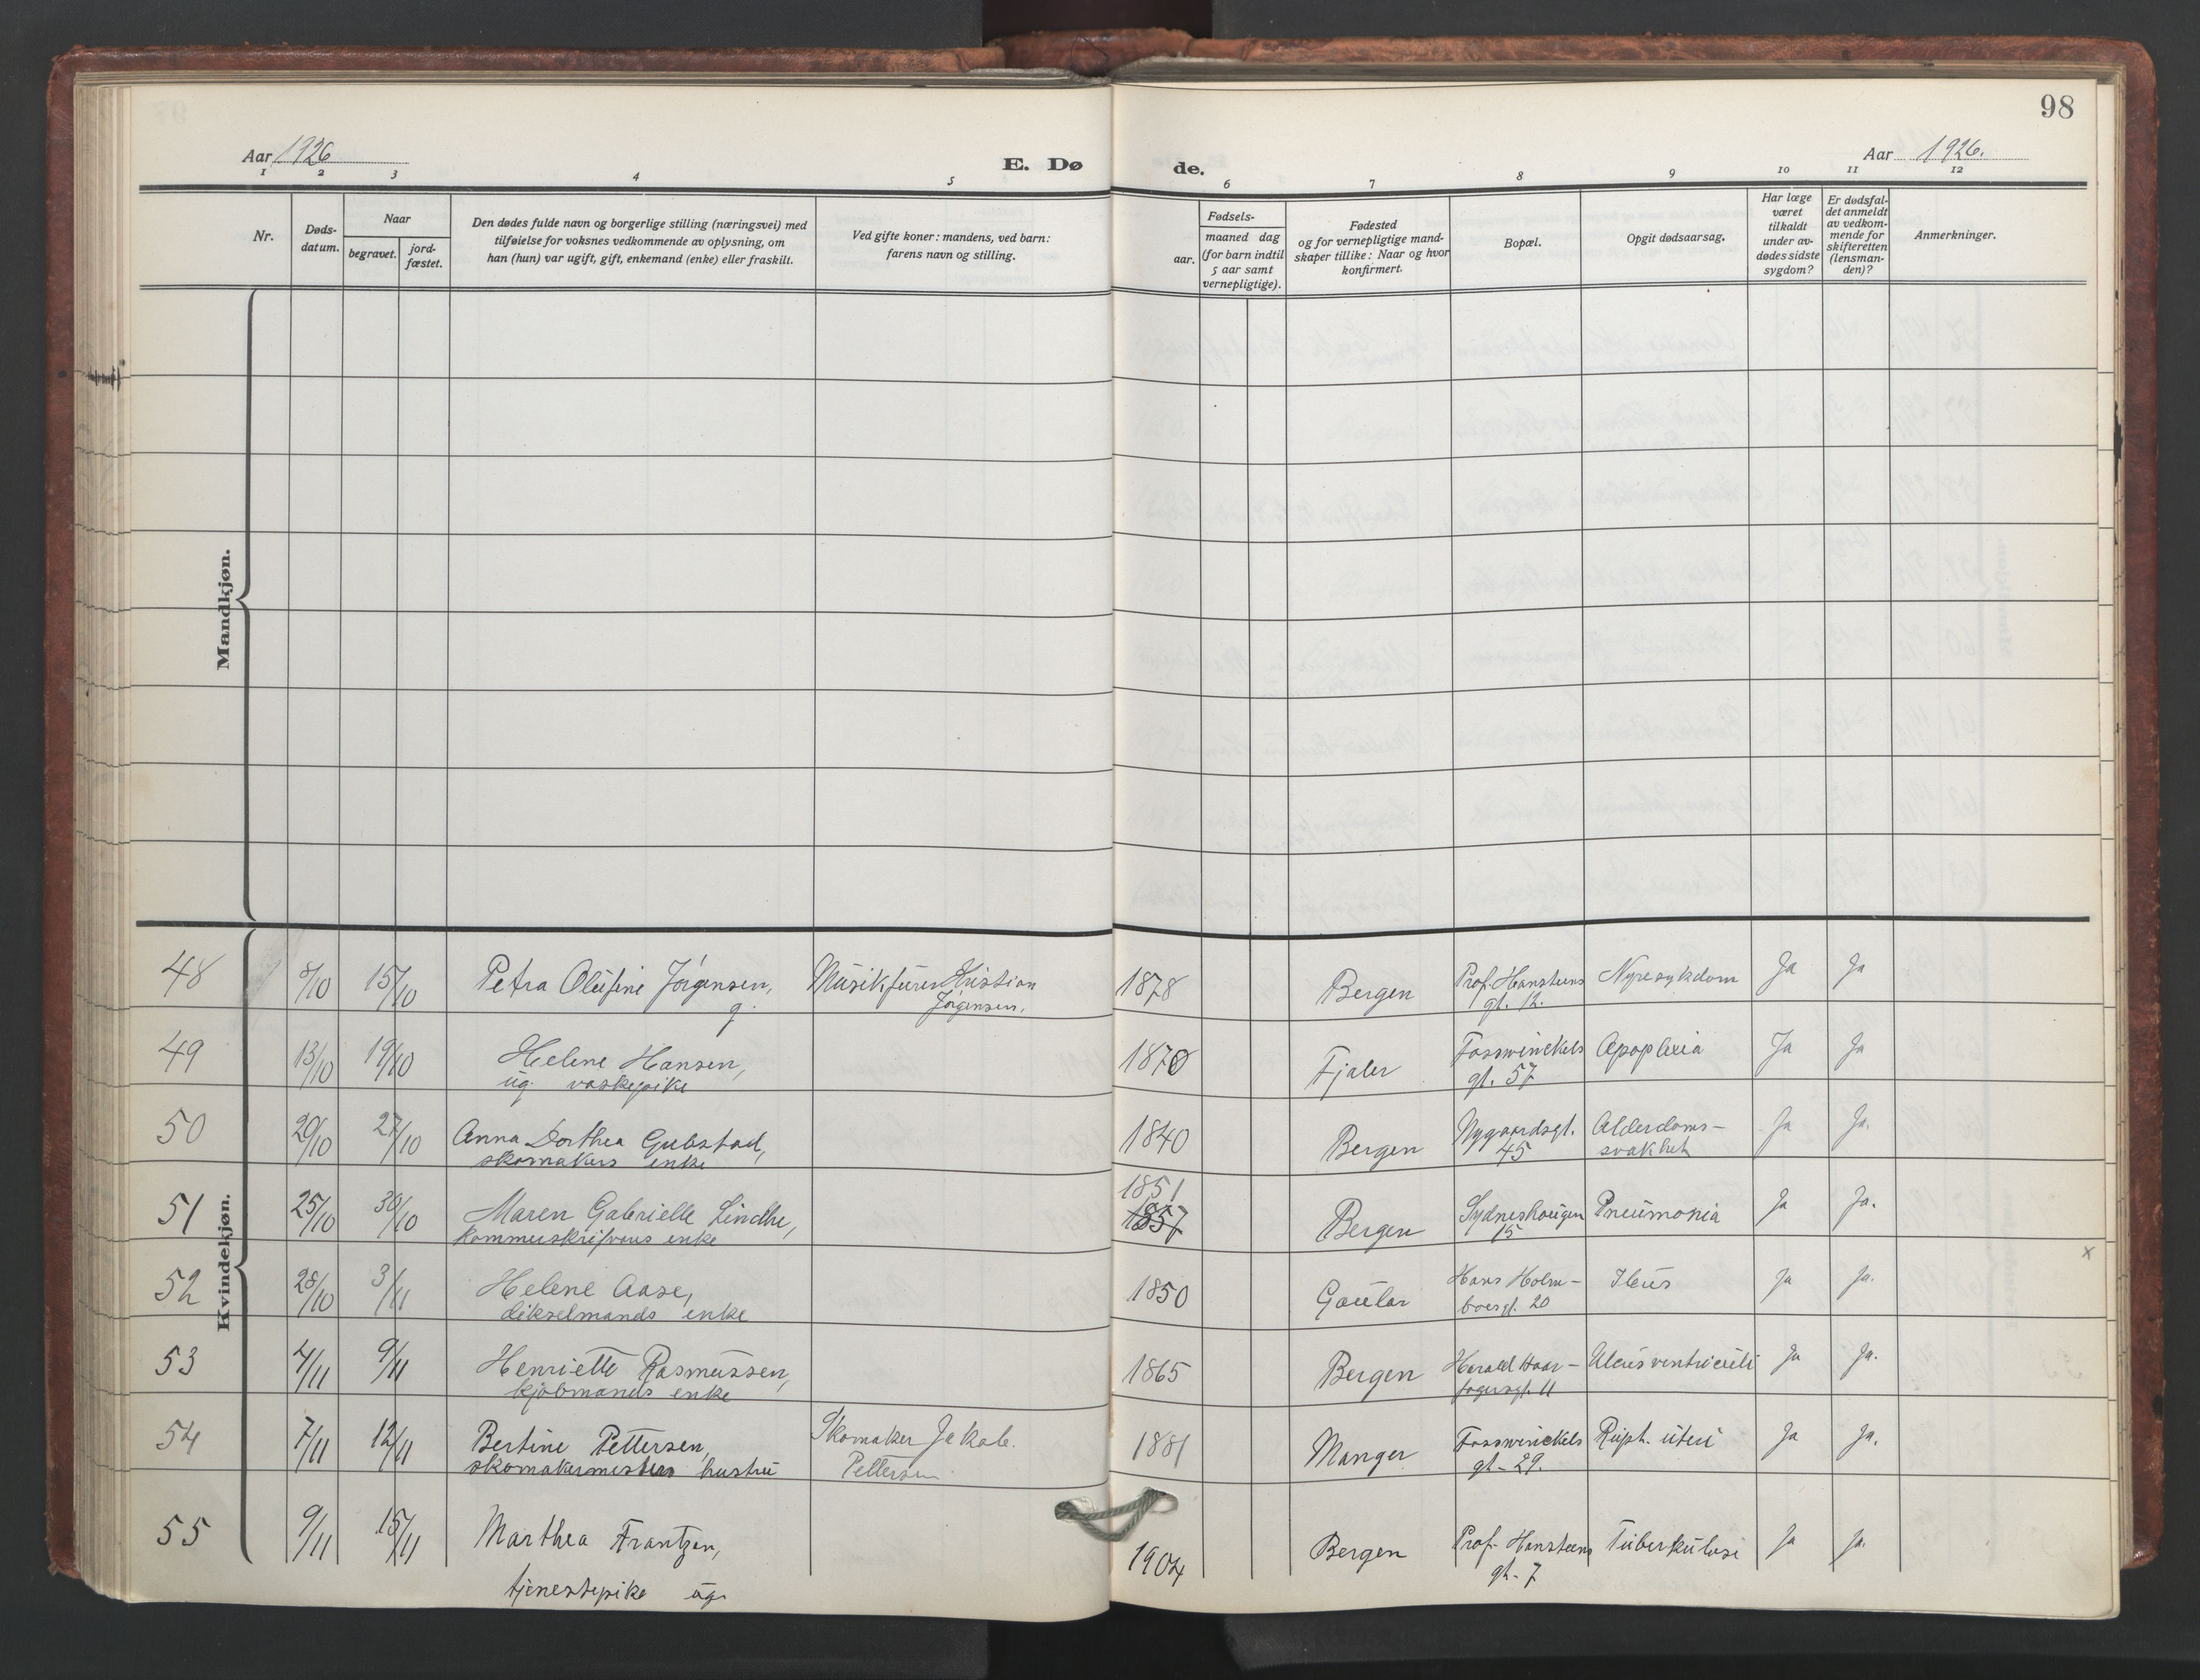 98
Aar 1926
E. Dø de.
Aar 1926.
1 2 3 4 5 6 7 8 9 10 11 12
Nr.
Døds-
datum.
Naar
begravet.
jord-
fæstet.
Den dødes fulde navn og borgerlige stilling (næringsvei) med
tilføielse for voksnes vedkommende av oplysning, om
han (hun) var ugift, gift, enkemand (enke) eller fraskilt.
Ved gifte koner: mandens, ved barn:
farens navn og stilling.
Fødsels-
aar.
maaned dag
(for barn indtil
5 aar samt
vernepligtige).
Fødested
og for vernepligtige mand-
skaper tillike: Naar og hvor
konfirmert.
Bopæl.
Opgit dødsaarsag.
Har læge
været
tilkaldt
under av-
dødes sidste
sygdom?
Er dødsfal-
det anmeldt
av vedkom-
mende for
skifteretten
(lensman-
den)?
Anmerkninger.
Mandkjøn.
Kvindekjøn.
48 8/10 15/10 Petra Olufine Jørgensen, Musikfuren Kristian 1878 Bergen Prof. Hansteens Nyresykdom Ja Ja
g. Jørgensen. gt. 12.
49 13/10 19/10 Helene Hansen, 1870 Fjaler Fosswinckels Apoplexia Ja Ja
ug. vaskepike gt. 57
50 20/10 27/10 Anna Dorthea Gubstad, 1840 Bergen Nygaardsgt. Alderdoms- Ja Ja.
skomakers enke 45 svakhet
1851
51 25/10 30/10 Maren Gabrielle Lindhe, 1857 Bergen Sydneshaugen Pneumonia Ja Ja.
enke 15
x
52 28/10 3/11 Helene Aase, 1850 Gaular Hans Holm- Ileus Ja Ja.
dikselmands enke boesgt. 20
53 4/11 9/11 Henriette Rasmussen, 1865 Bergen Harald Haar- Ulcus ventriculi Ja Ja.
kjøbmands enke fagersgt. 11
54 7/11 12/11 Bertine Pettersen, Skomaker Jakob. 1881 Manger Fosswinckels Rupt. uteri Ja Ja.
skomakermesters hustru Pettersen gt. 29.
55 9/11 15/11 Marthea Frantzen, 1904 Bergen Prof. Hansteens Tuberkulose Ja Ja.
tjenestepike ug. gt. 7